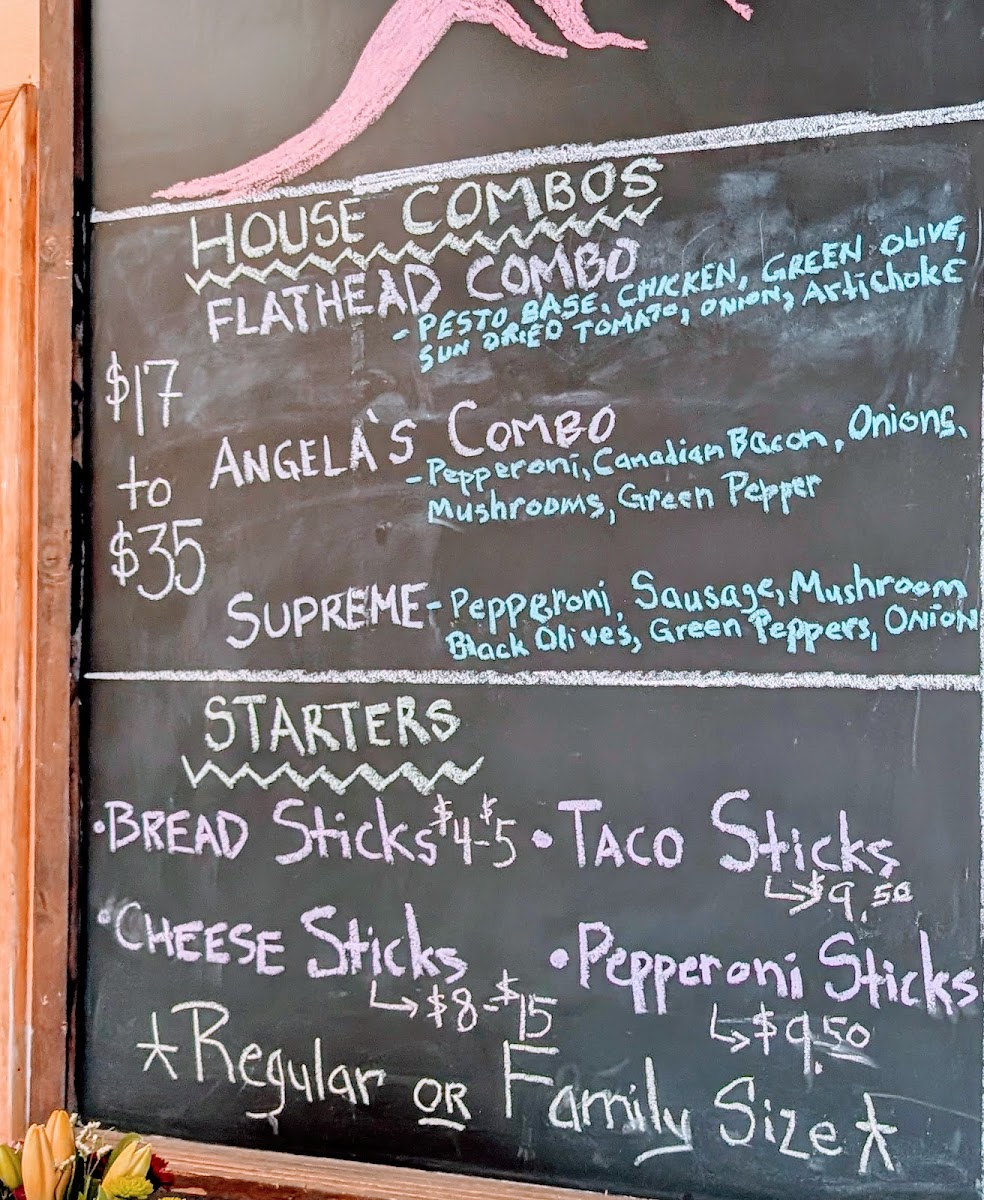 HOUSE COMBOS
FLATHEAD COMBO
- PESTO BASE, CHICKEN, GREEN OLIVE,
SUN DRIED TOMATO, ONION, Artichoke
$17
to
$35
ANGELA'S COMBO
- Pepperoni, Canadian Bacon, Onions,
Mushrooms, Green Pepper
SUPREME - Pepperoni, Sausage, Mushroom
Black Olives, Green Peppers, ONION
STARTERS
• BREAD Sticks $4-$5
• TACO Sticks
↳ $9.50
• CHEESE Sticks
↳ $8-$15
• Pepperoni Sticks
↳ $9.50
* Regular OR Family Size *